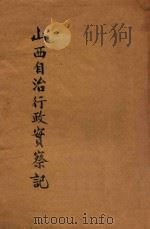 山西自治行政實察記
mtoou.info
mtoou.info